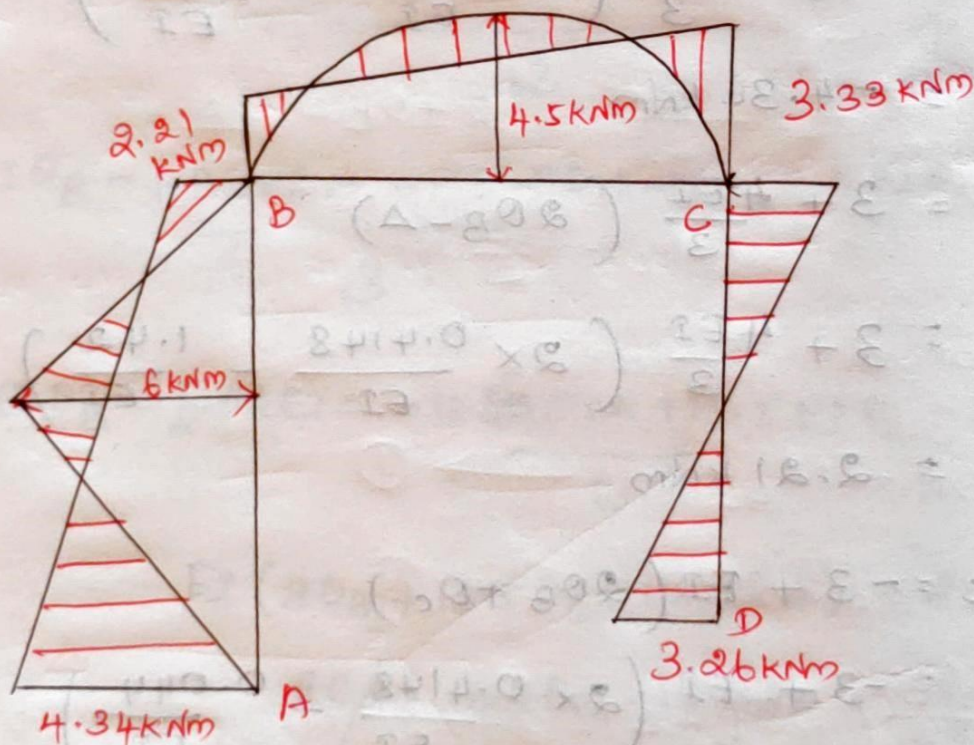 4.5KNm
3.33 KNm
2.21
KNm
B
C
6KNM
D
3.26KNm
A
4.34KNm